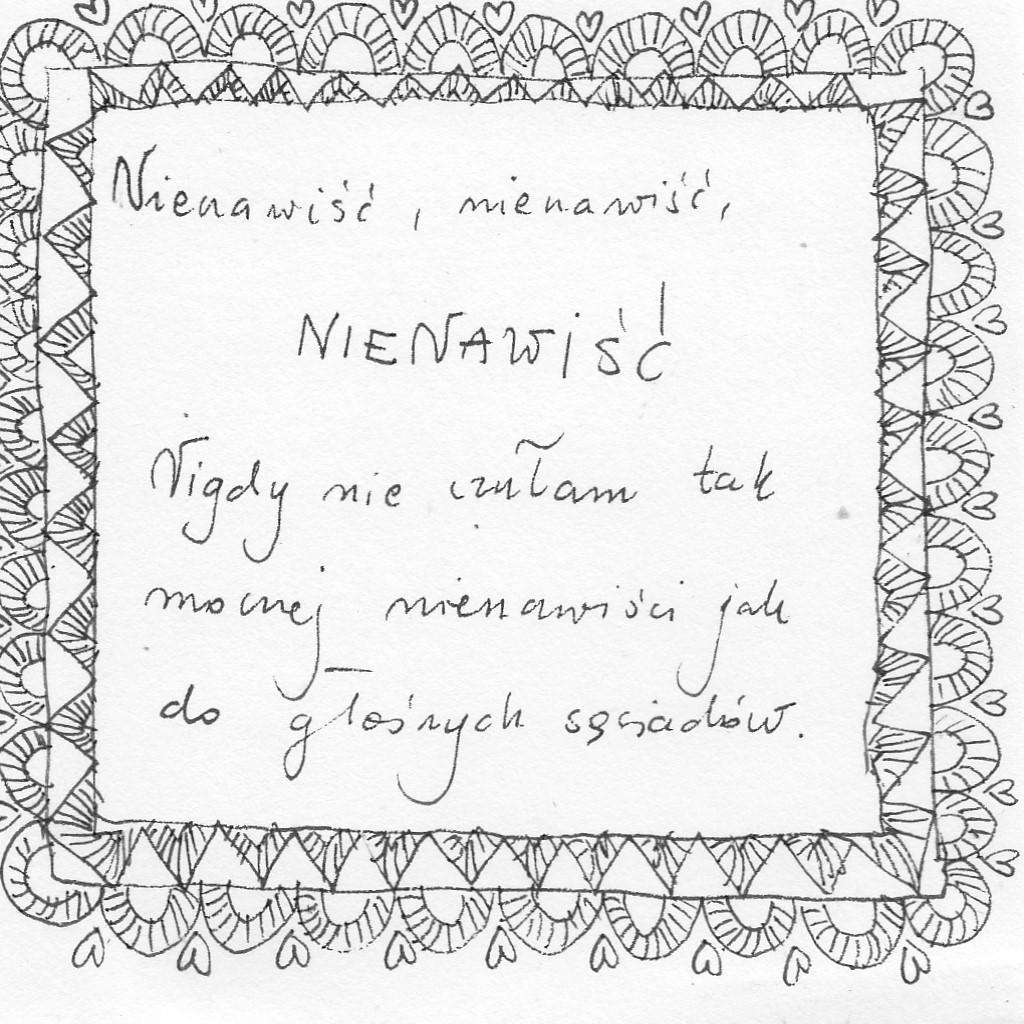 Nienawiść, nienawiść,
NIENAWIŚĆ
Nigdy nie czułam tak
mocnej nienawiści jak
do głośnych sąsiadów.